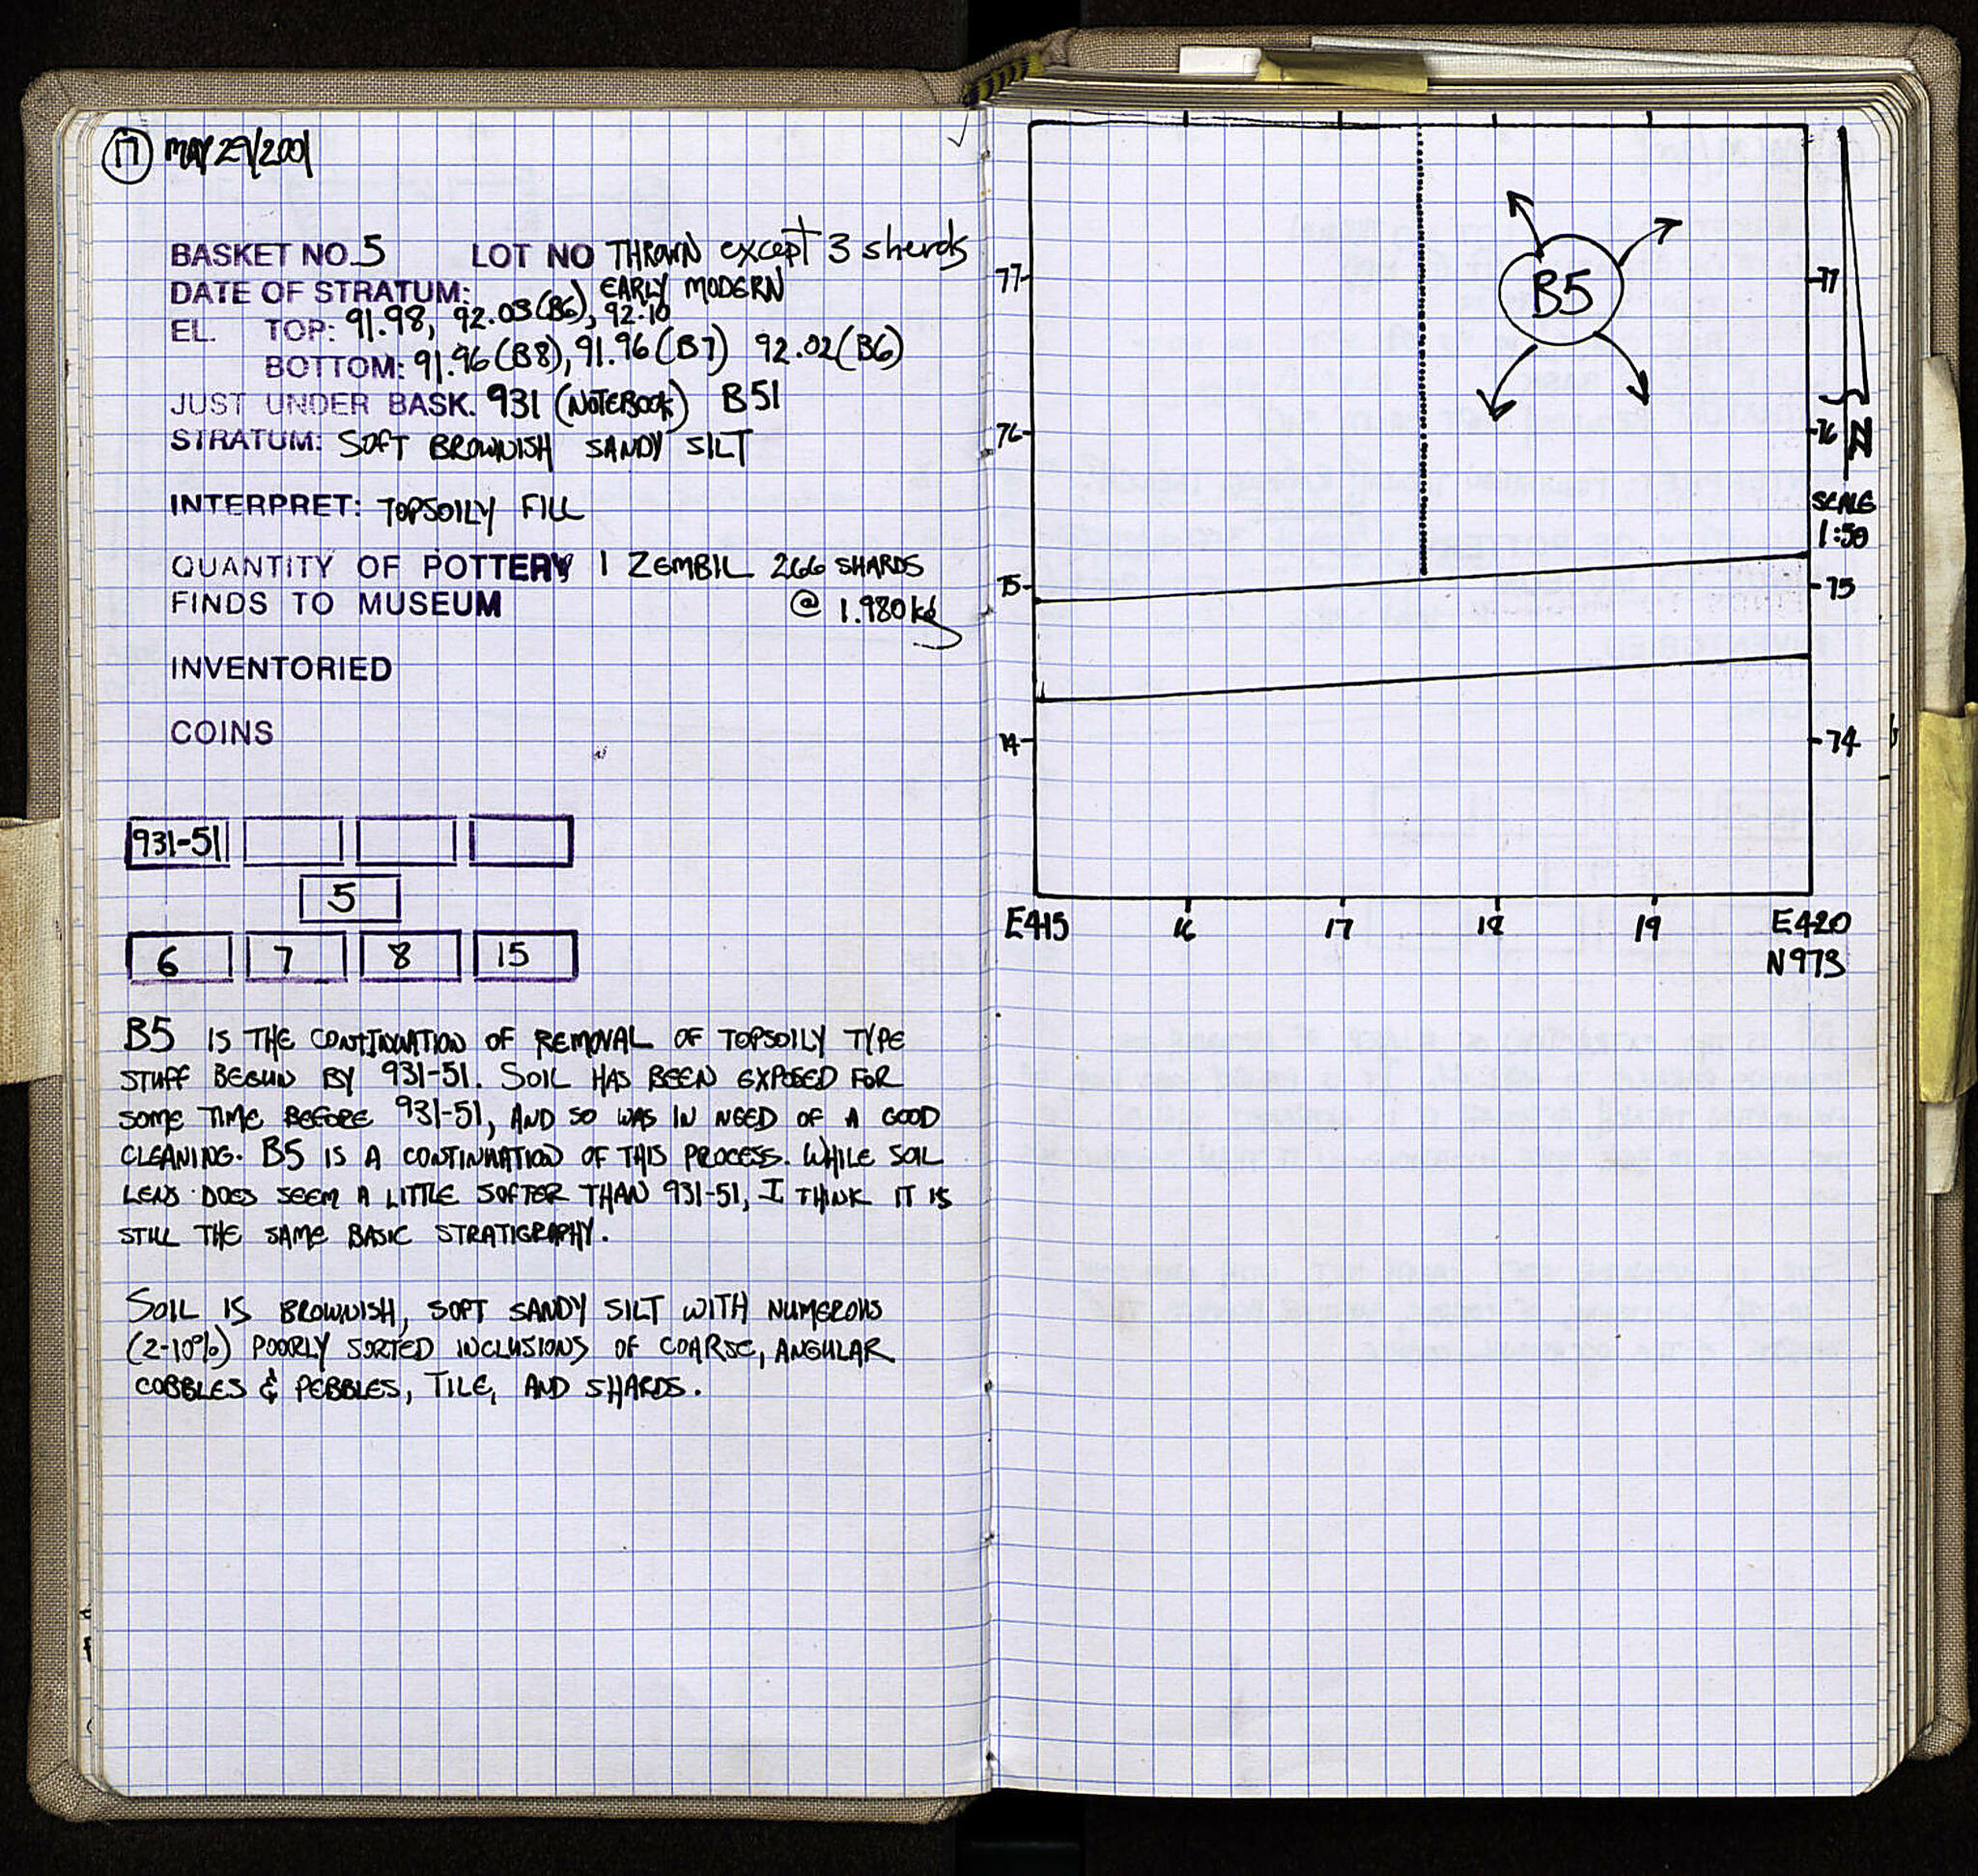 17 MAY 29/2001
BASKET NO. 5 LOT NO THROWN except 3 sherds
DATE OF STRATUM: EARLY MODERN
EL. TOP: 91.98, 92.03(B6), 92.10
BOTTOM: 91.96(B8), 91.96(B7) 92.02(B6)
JUST UNDER BASK. 931 (NOTEBOOK) B51
STRATUM: SOFT BROWNISH SANDY SILT
INTERPRET: TOPSOILY FILL
QUANTITY OF POTTERY 1 ZEMBIL 266 SHARDS
FINDS TO MUSEUM @ 1.980 kg
INVENTORIED
COINS
931-51
5
6 7 8 15
B5 IS THE CONTINUATION OF REMOVAL OF TOPSOILY TYPE
STUFF BEGUN BY 931-51. SOIL HAS BEEN EXPOSED FOR
SOME TIME BEFORE 931-51, AND SO WAS IN NEED OF A GOOD
CLEANING. B5 IS A CONTINUATION OF THIS PROCESS. WHILE SOIL
LENS DOES SEEM A LITTLE SOFTER THAN 931-51, I THINK IT IS
STILL THE SAME BASIC STRATIGRAPHY.
SOIL IS BROWNISH, SOFT SANDY SILT WITH NUMEROUS
(2-10%) POORLY SORTED INCLUSIONS OF COARSE, ANGULAR
COBBLES & PEBBLES, TILE, AND SHARDS.
B5
77 77
76 76 N
SCALE
1:50
75 75
74 74
E415 16 17 18 19 E420
N973